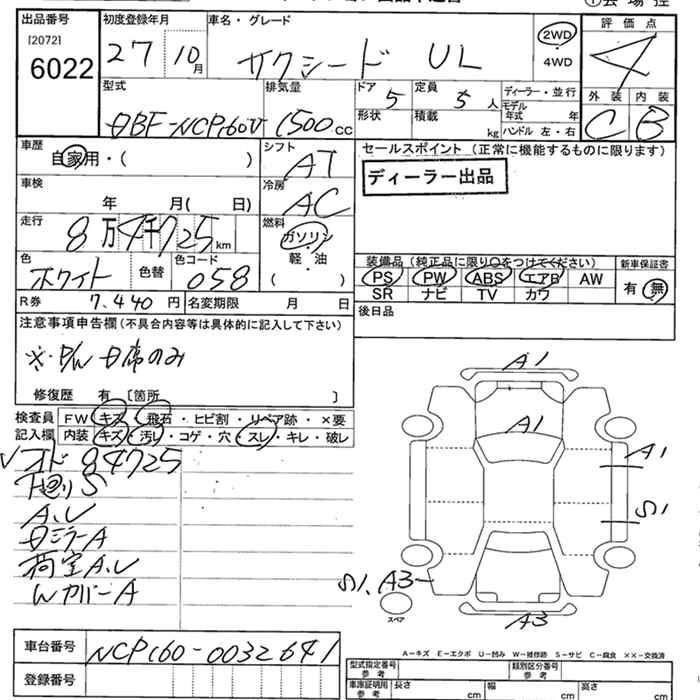 出品番号 初度登録年月 車名・グレード 評価点
[2072]
6022
27 10月 サクシード UL 2WD・4WD 4
型式 排気量 ドア 定員 ディーラー・並行 外装 内装
DBF-NCP160V 1500cc 5 5人 モデル年式 年
形状 積載 kg ハンドル 左・右 C B
車歴 シフト セールスポイント (正常に機能するものに限ります)
自家用・( ) AT
ディーラー出品
車検 冷房
年 月( 日) AC
走行 燃料
8万4千725km ガソリン・軽・油 ( )
色 色替 色コード 装備品 (純正品に限り〇をつけてください) 新車保証書
ホワイト 058 PS PW ABS エアB AW 有・無
SR ナビ TV カワ
R券 7,440円 名変期限 月 日
後日品
注意事項申告欄(不具合内容等は具体的に記入して下さい)
※P/W D席のみ
修復歴 有 [箇所 ]
検査員 FW キズ・飛石・ヒビ割・リペア跡・×要
記入欄 内装 キズ・汚レ・コゲ・穴・スレ・キレ・破レ
✓オド 84725
下廻りS
A.U
DミラーA
荷室A.U
WカバーA
A1
A1
A1
S1
S1. A3
スペア
A3
A-キズ E-エクボ U-凹み W-補修跡 S-サビ C-腐食 ××-交換済
車台番号 NCP160-0032641
登録番号
型式指定番号 参考 類別区分番号 参考
車庫証明用 参考 長さ cm 幅 cm 高さ cm